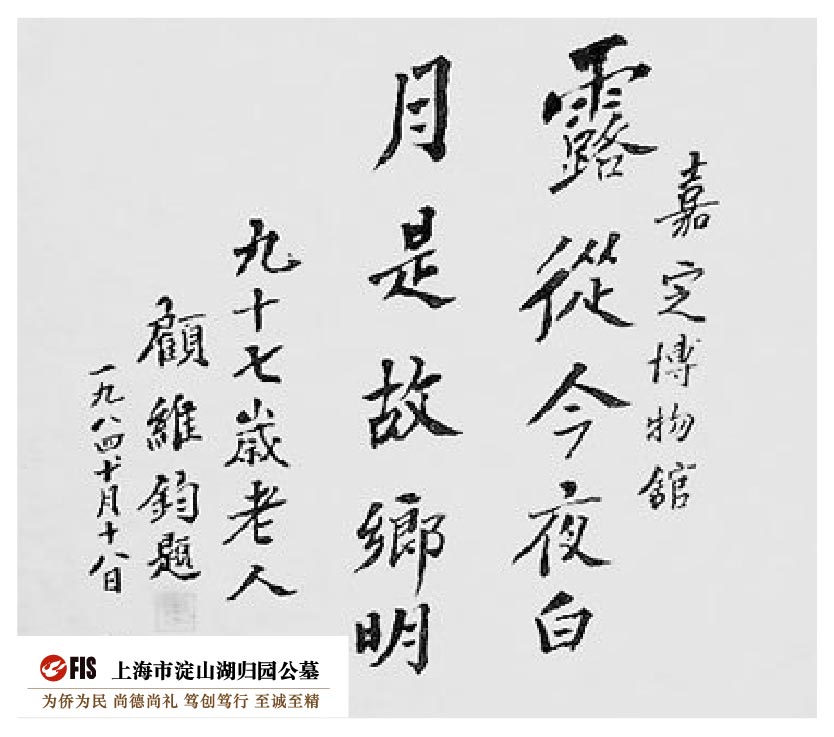 嘉定博物館
露從今夜白
月是故鄉明
九十七歲老人
顧維鈞題
一九八四年十月十八日
FIS 上海市淀山湖归园公墓
为侨为民 尚德尚礼 笃创笃行 至诚至精